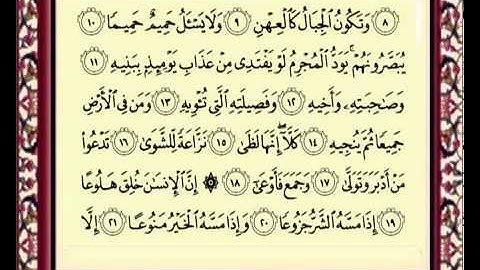 ۝٨ وَتَكُونُ ٱلْجِبَالُ كَٱلْعِهْنِ ۝٩ وَلَا يَسْـَٔلُ حَمِيمٌ حَمِيمًا ۝١٠
يُبَصَّرُونَهُمْ ۚ يَوَدُّ ٱلْمُجْرِمُ لَوْ يَفْتَدِى مِنْ عَذَابِ يَوْمِئِذٍۭ بِبَنِيهِ ۝١١
وَصَـٰحِبَتِهِۦ وَأَخِيهِ ۝١٢ وَفَصِيلَتِهِ ٱلَّتِى تُـْٔوِيهِ ۝١٣ وَمَن فِى ٱلْأَرْضِ
جَمِيعًا ثُمَّ يُنجِيهِ ۝١٤ كَلَّآ ۖ إِنَّهَا لَظَىٰ ۝١٥ نَزَّاعَةً لِّلشَّوَىٰ ۝١٦ تَدْعُوا۟
مَنْ أَدْبَرَ وَتَوَلَّىٰ ۝١٧ وَجَمَعَ فَأَوْعَىٰٓ ۝١٨ ۞ إِنَّ ٱلْإِنسَـٰنَ خُلِقَ هَلُوعًا
۝١٩ إِذَا مَسَّهُ ٱلشَّرُّ جَزُوعًا ۝٢٠ وَإِذَا مَسَّهُ ٱلْخَيْرُ مَنُوعًا ۝٢١ إِلَّا